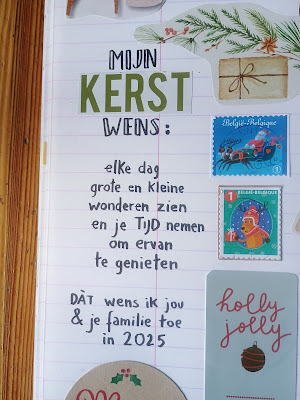 MIJN
KERST
WENS:
elke dag
grote en kleine
wonderen zien
en je TIJD nemen
om ervan
te genieten
DÀT wens ik jou
& je familie toe
in 2025
België-Belgique
1
BELGIË-BELGIQUE
holly
jolly